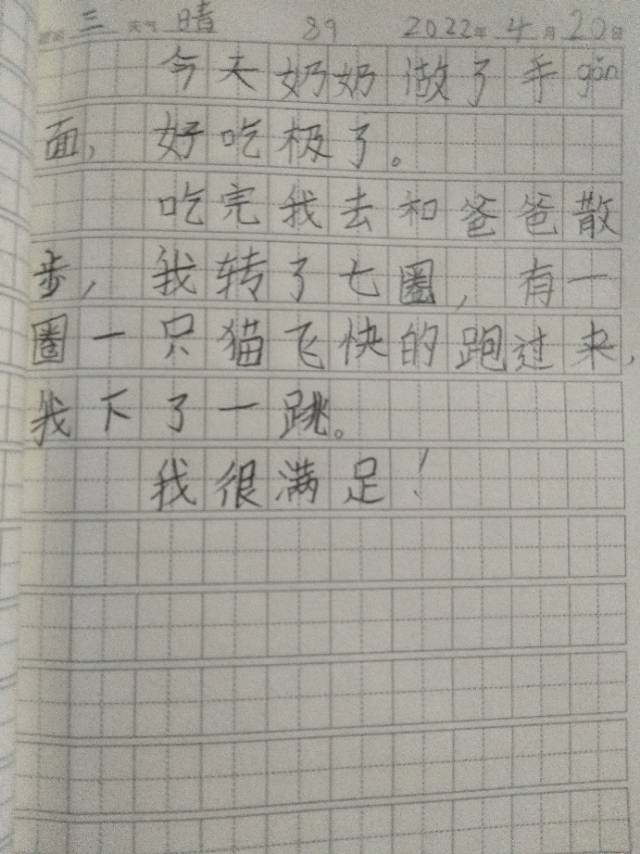 星期 三 天气 晴 89 2022年 4月 20日
今天奶奶做了手gǎn
面，好吃极了。
吃完我去和爸爸散
步，我转了七圈，有一
圈一只猫飞快的跑过来，
我下了一跳。
我很满足！